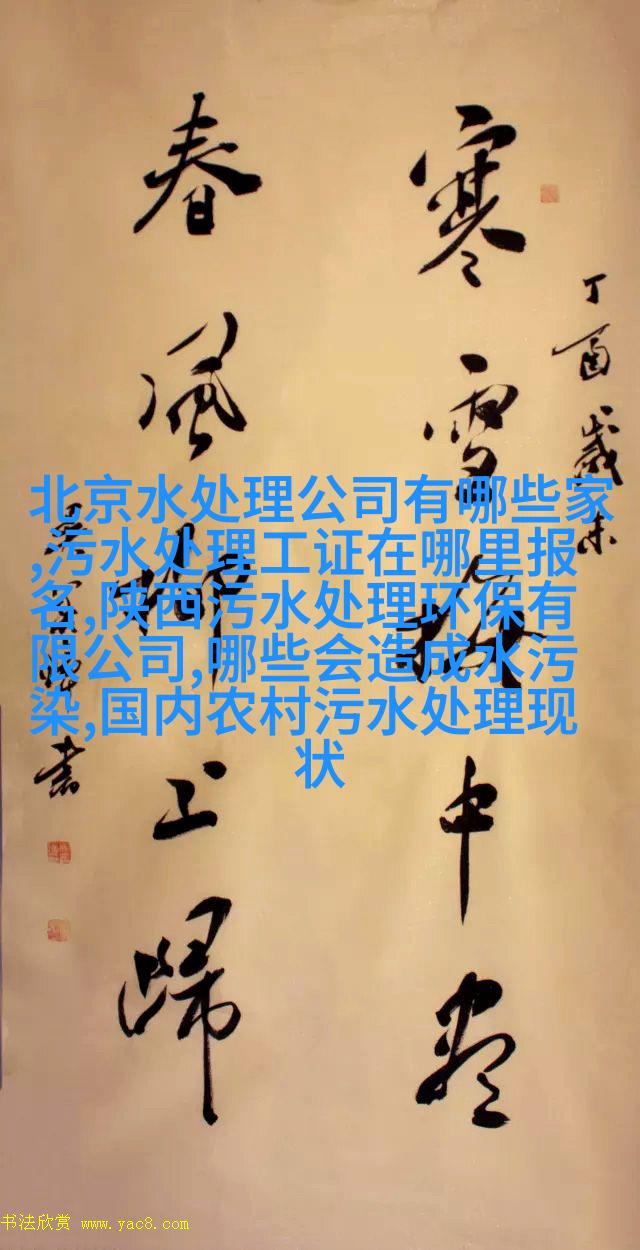 寒雪梅中尽
春风柳上归
丁酉岁末
北京水处理公司有哪些家
,污水处理工证在哪里报
名,陕西污水处理环保有
限公司,哪些会造成水污
染,国内农村污水处理现
状
书
书法欣赏 www.yac8.com